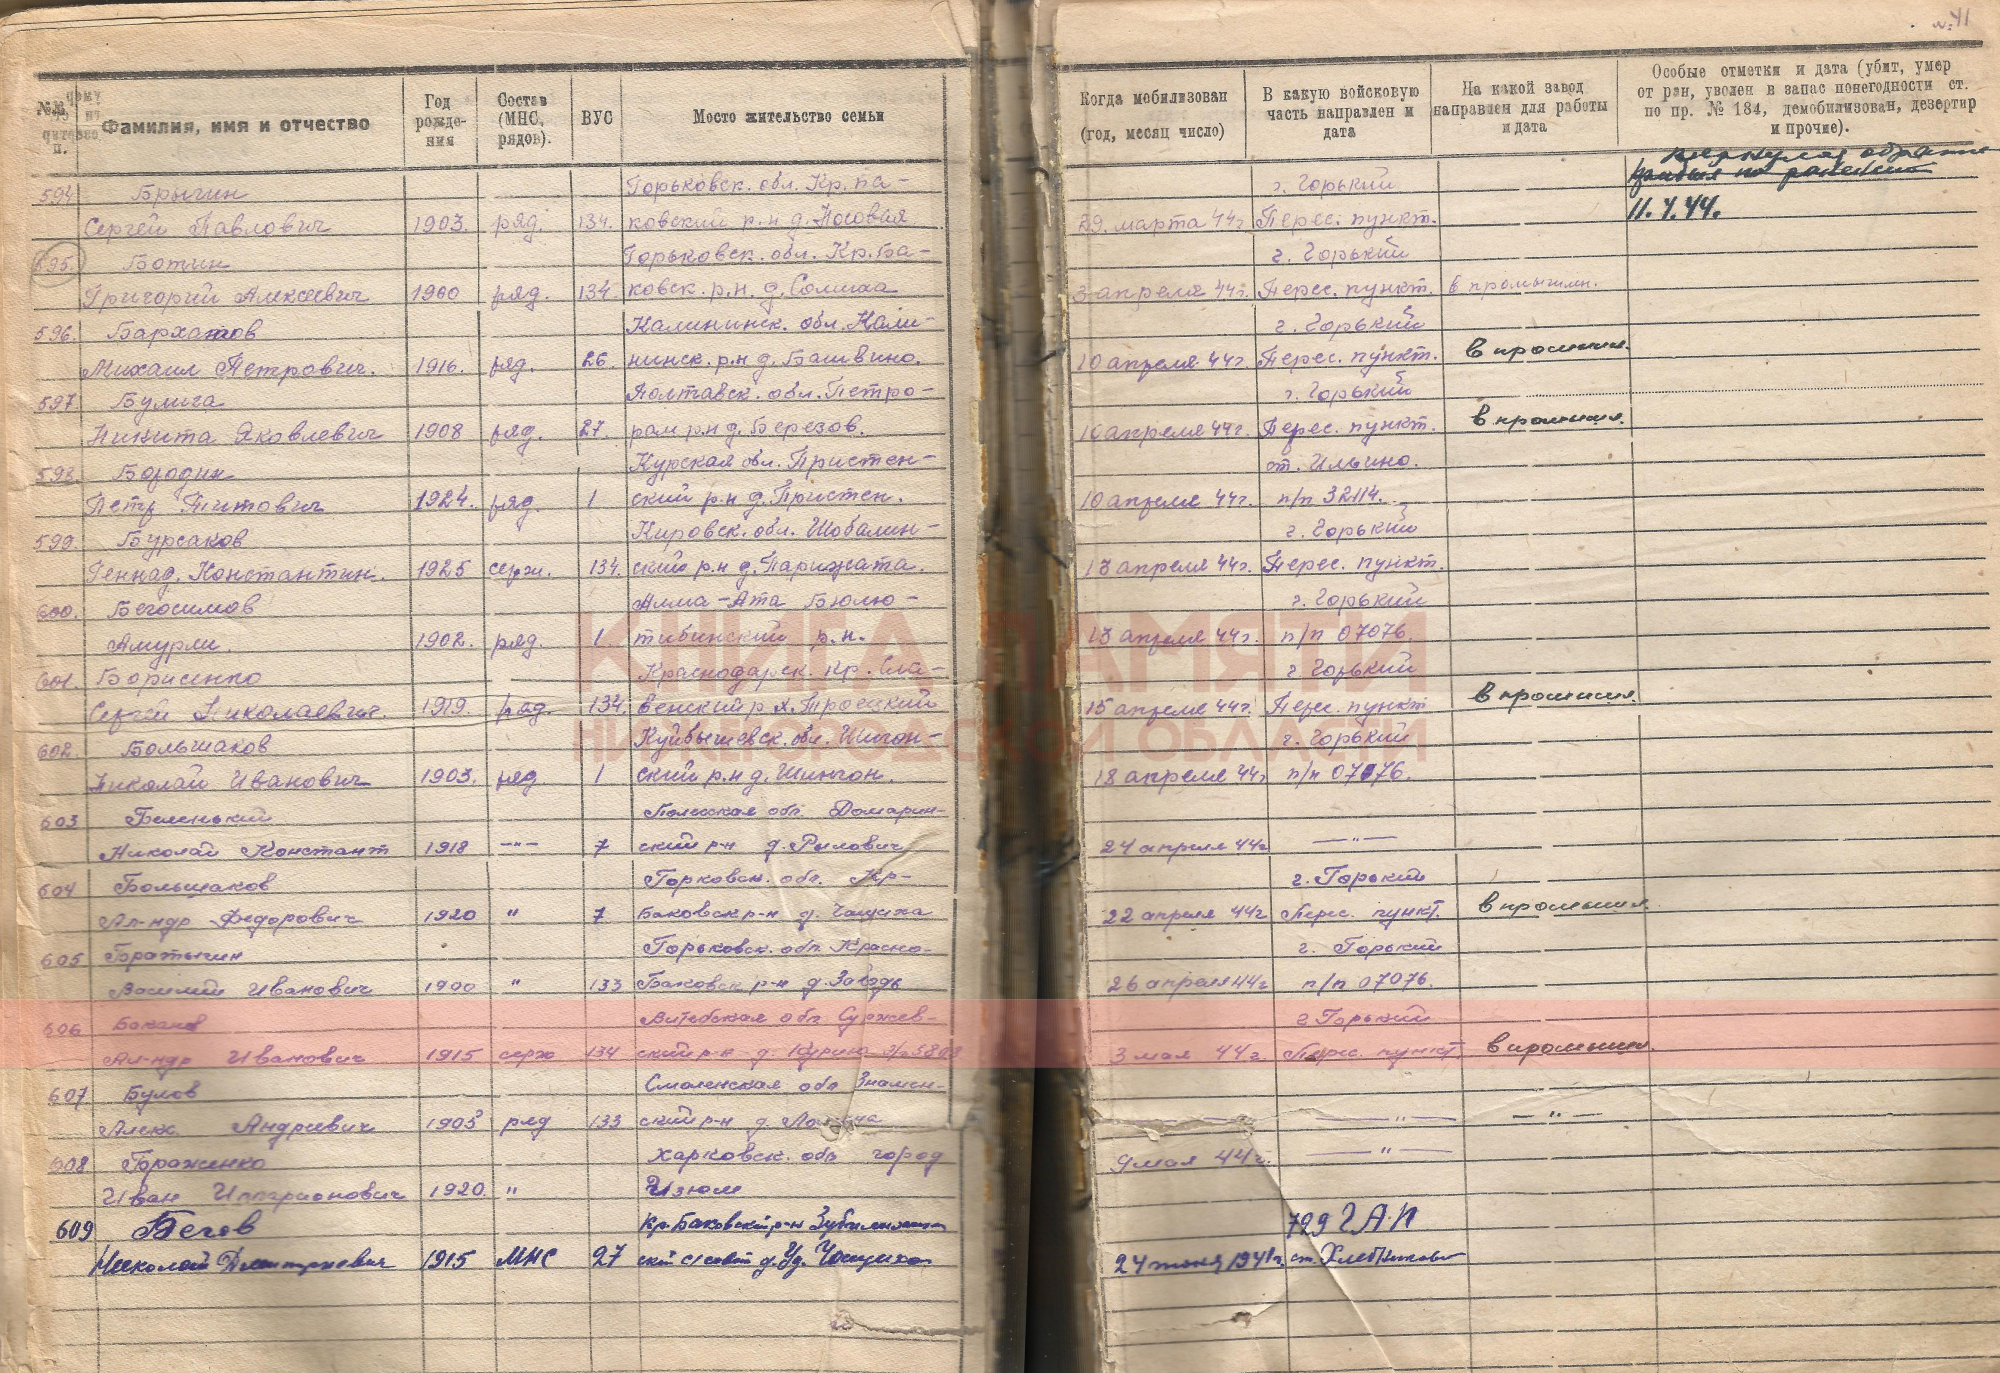 № 41
№№ п.п.
Фамилия, имя и отчество
Год рожде-ния
Состав (МНС, рядов).
ВУС
Место жительство семьи
Когда мобилизован (год, месяц число)
В какую войсковую часть направлен и дата
На какой завод направлен для работы и дата
Особые отметки и дата (убит, умер от ран, уволен в запас понегодности ст. по пр. № 184, демобилизован, дезертир и прочие).
594 Брыгин Горьковск. обл. Кр. Ба- г. Горький
Сергей Павлович 1903. ряд. 134. ковский р.н д. Носовая 29 марта 44г. Перес. пункт. 11.4.44.
595. Ботин Горьковск. обл. Кр. Ба- г. Горький
Григорий Алексеевич 1900 ряд. 134. ковск. р.н. д. 3 апреля 44г. Перес. пункт. в промышлн.
596. Бархатов Калининск. обл. Кали- г. Горький
Михаил Петрович. 1916. ряд. 26. нинск. р.н д. Башвино. 10 апреля 44г. Перес. пункт. в промышл.
597 Булига Полтавск. обл. Петро- г. Горький
Никита Яковлевич 1908 ряд. 27. рам р.н д. Березов. 10 апреля 44г. Перес. пункт. в промышл.
598. Бородин Курская обл. Пристен- ст. Ильино.
Петр Титович 1924. ряд. 1 ский р.н д. Пристен. 10 апреля 44г. п/п 32114.
599. Бурсаков Кировск. обл. Шабалин- г. Горький
Геннад. Константин. 1925 серж. 134. ский р.н д. Парижата. 13 апреля 44г. Перес. пункт.
600. Бегосимов Алма-Ата Бюлю- г. Горький
Амурли. 1902. ряд. 1. тибинский р.н. 13 апреля 44г. п/п 07076.
601. Борисенко Краснодарск. кр. Сла- г Горький
Сергей Николаевич. 1919. ряд. 134. венский р.н. Троецкий 15 апреля 44г. Перес. пункт в промышл.
КНИГА ПАМЯТИ
НИЖЕГОРОДСКОЙ ОБЛАСТИ
602. Большаков Куйбышевск. обл. Шигон- г. Горький
Николай Иванович 1903. ряд 1 ский р.н д. Шигон. 18 апреля 44г п/п 07076.
603 Беленький Полесская обл. Домарин-
Николай Констант 1918 -"- 7 ский р-н д. Рилович 24 апреля 44г —"—
604 Большаков Горковск. обл. Кр- г. Горький
Ал-ндр Федорович 1920 " 7 Баковск р-н д. Чащиха 22 апреля 44г Перес. пункт. в промышл.
605 Горатыгин Горьковск. обл. Красно- г. Горький
Василий Иванович 1900 " 133 Баковск р-н д. Заводь 26 апреля 44г п/п 07076.
606 Баканов Витебская обл. Суржев- г Горький
Ал-ндр Иванович 1915 серж 134 ский р-н д. 3 мая 44г. Перес. пункт. в промышл.
607. Булов Смоленская обл Знамен-
Алекс. Андревич 1905 ряд 133 ский р-н д. —"— —"—
608. Гораженко Харковск. обл город 9 мая 44г. —"—
Иван Илларионович 1920. " Изюм
609 Бегов Кр. Баковский р-н 729 ГАП
Николай Дмитриевич 1915 МНС 27 ский с/совет д. Уд. Чащиха 24 июня 1941г. ст. Хлебниково